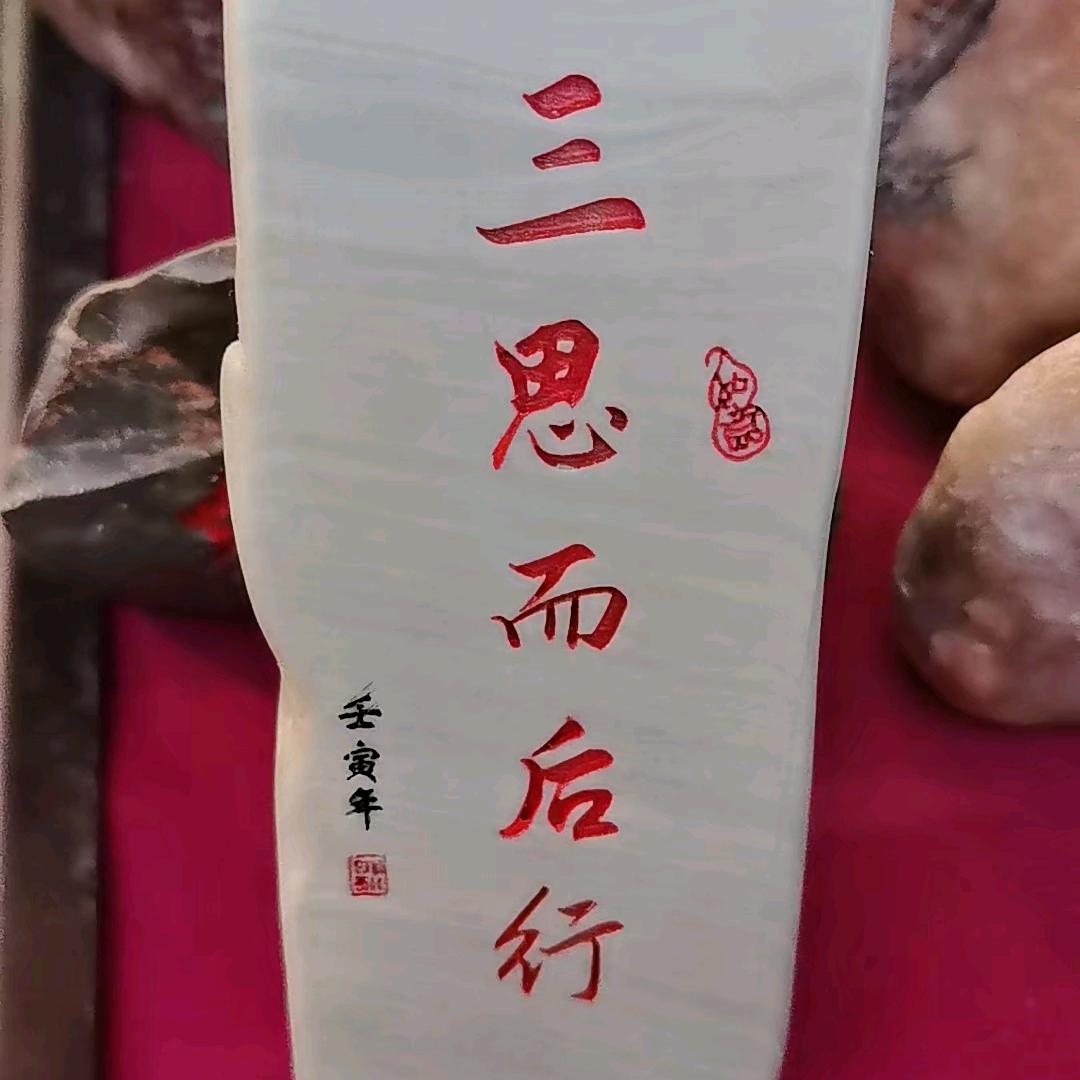 三思而后行
壬寅年